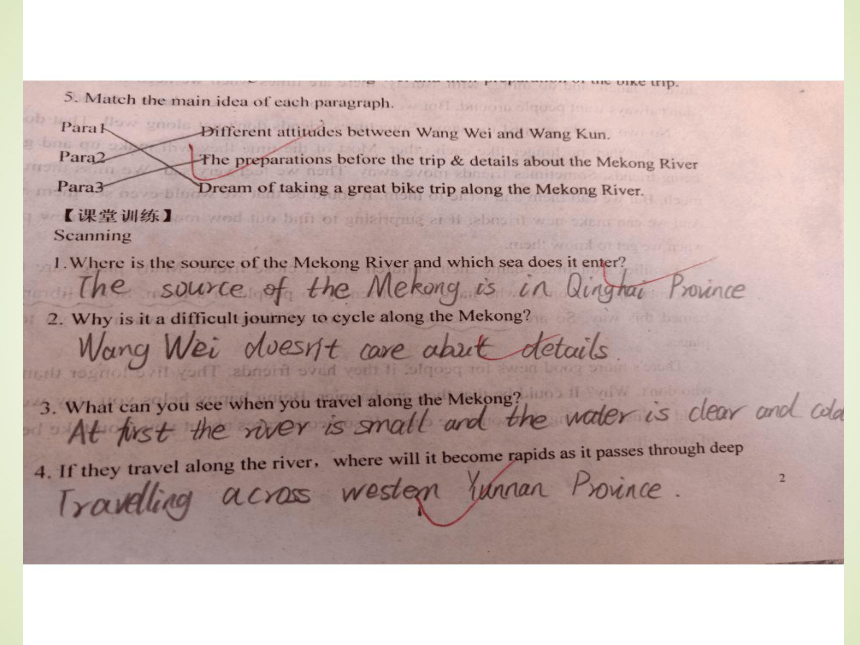 bike trip.
5. Match the main idea of each paragraph.
Para1 Different attitudes between Wang Wei and Wang Kun.
Para2 The preparations before the trip & details about the Mekong River
Para3 Dream of taking a great bike trip along the Mekong River.
【课堂训练】
Scanning
1.Where is the source of the Mekong River and which sea does it enter?
The source of the Mekong is in Qinghai Province
2. Why is it a difficult journey to cycle along the Mekong?
Wang Wei doesn't care about details.
3. What can you see when you travel along the Mekong?
At first the river is small and the water is clear and cold
4. If they travel along the river, where will it become rapids as it passes through deep
Travelling across western Yunnan Province.
2